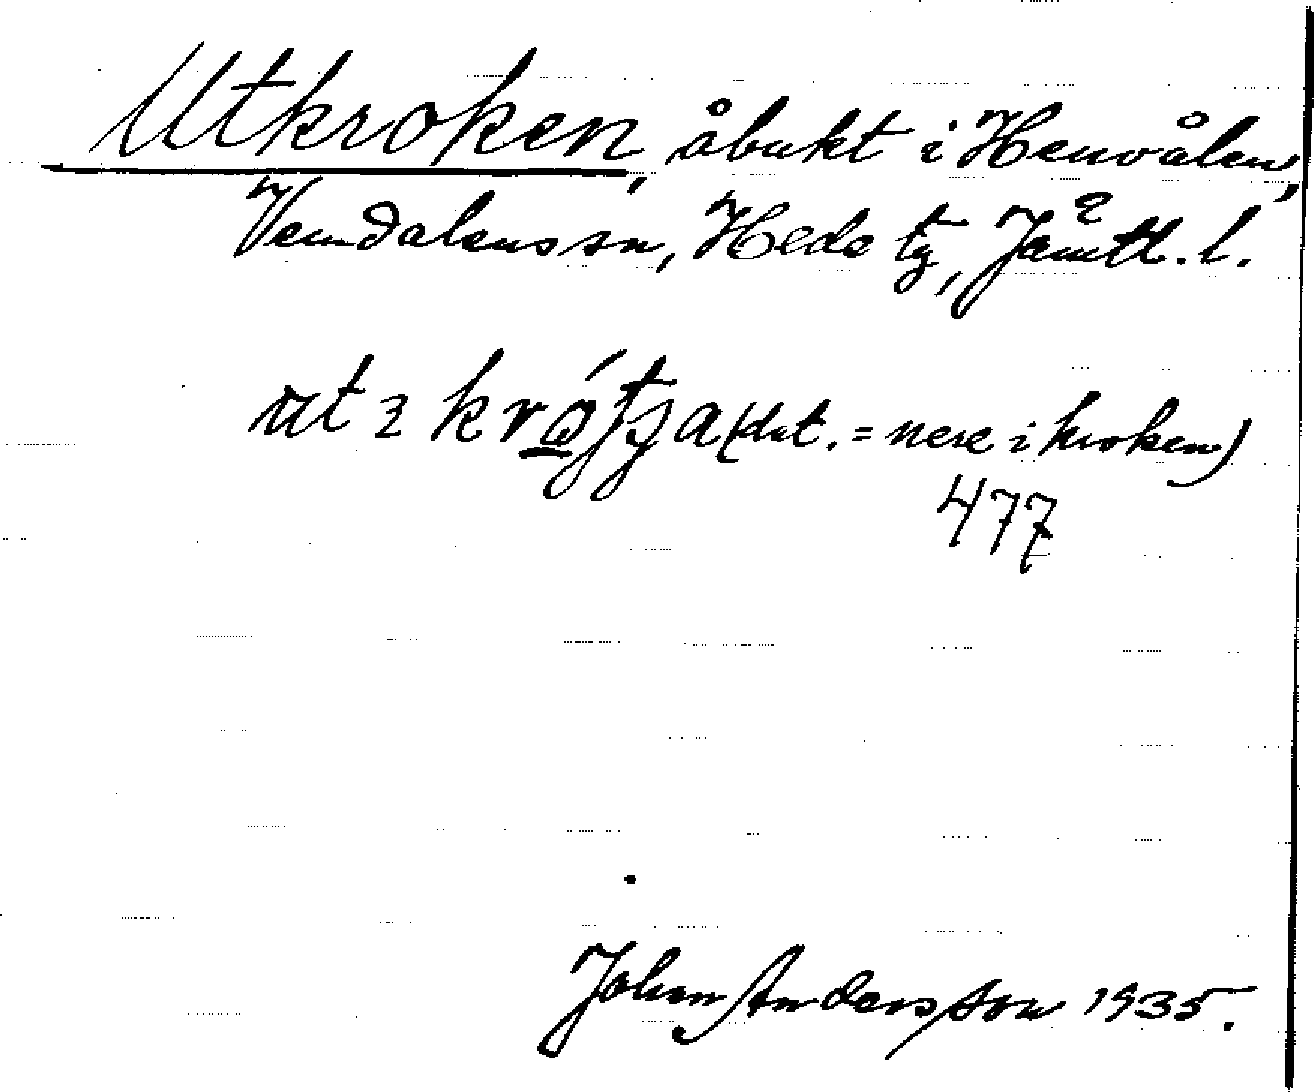 Utkroken, åbukt i Henvålen,
Vemdalens sn, Hede tg, Jämtl. l.
(dat. = nere i kroken)
477
Johan Andersson 1935.